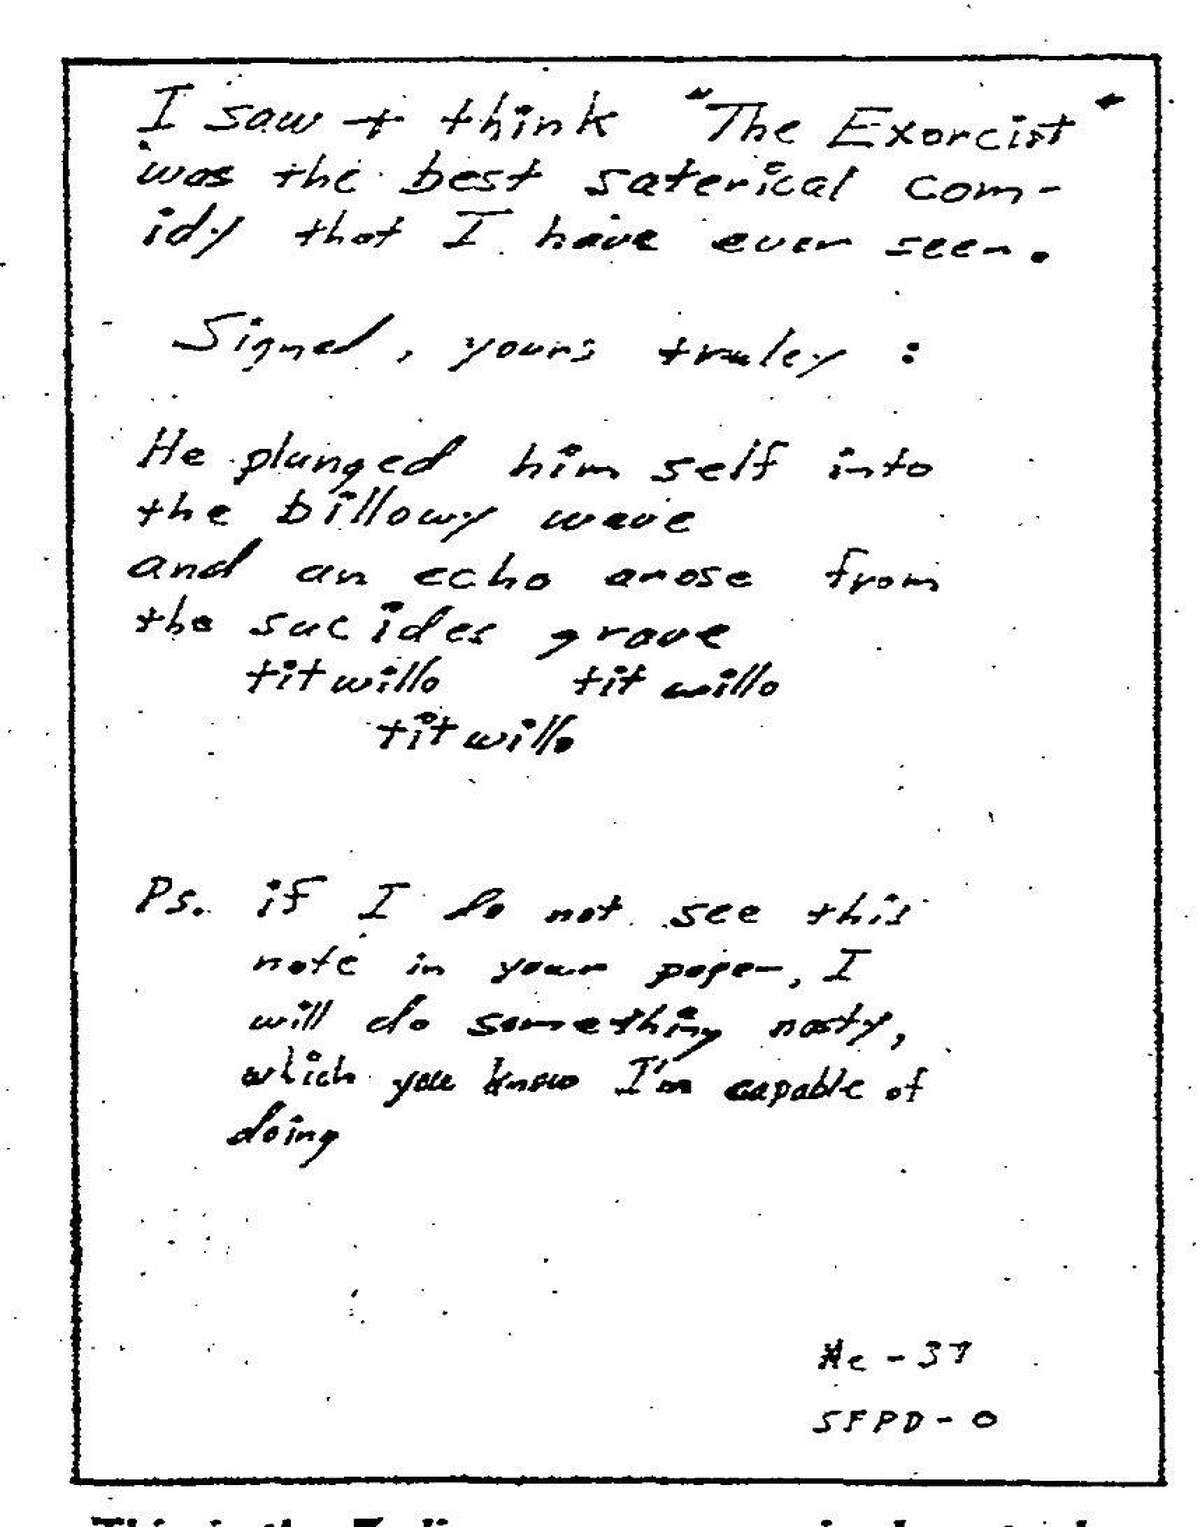 I saw + think "The Exorcist"
was the best saterical com-
idy that I have ever seen.
Signed, yours truley :
He plunged him self into
the billowy wave
and an echo arose from
the sucides grave
titwillo tit willo
titwillo
Ps. if I do not see this
note in your paper, I
will do something nasty,
which you know I'm capable of
doing
Me - 37
SFPD - 0